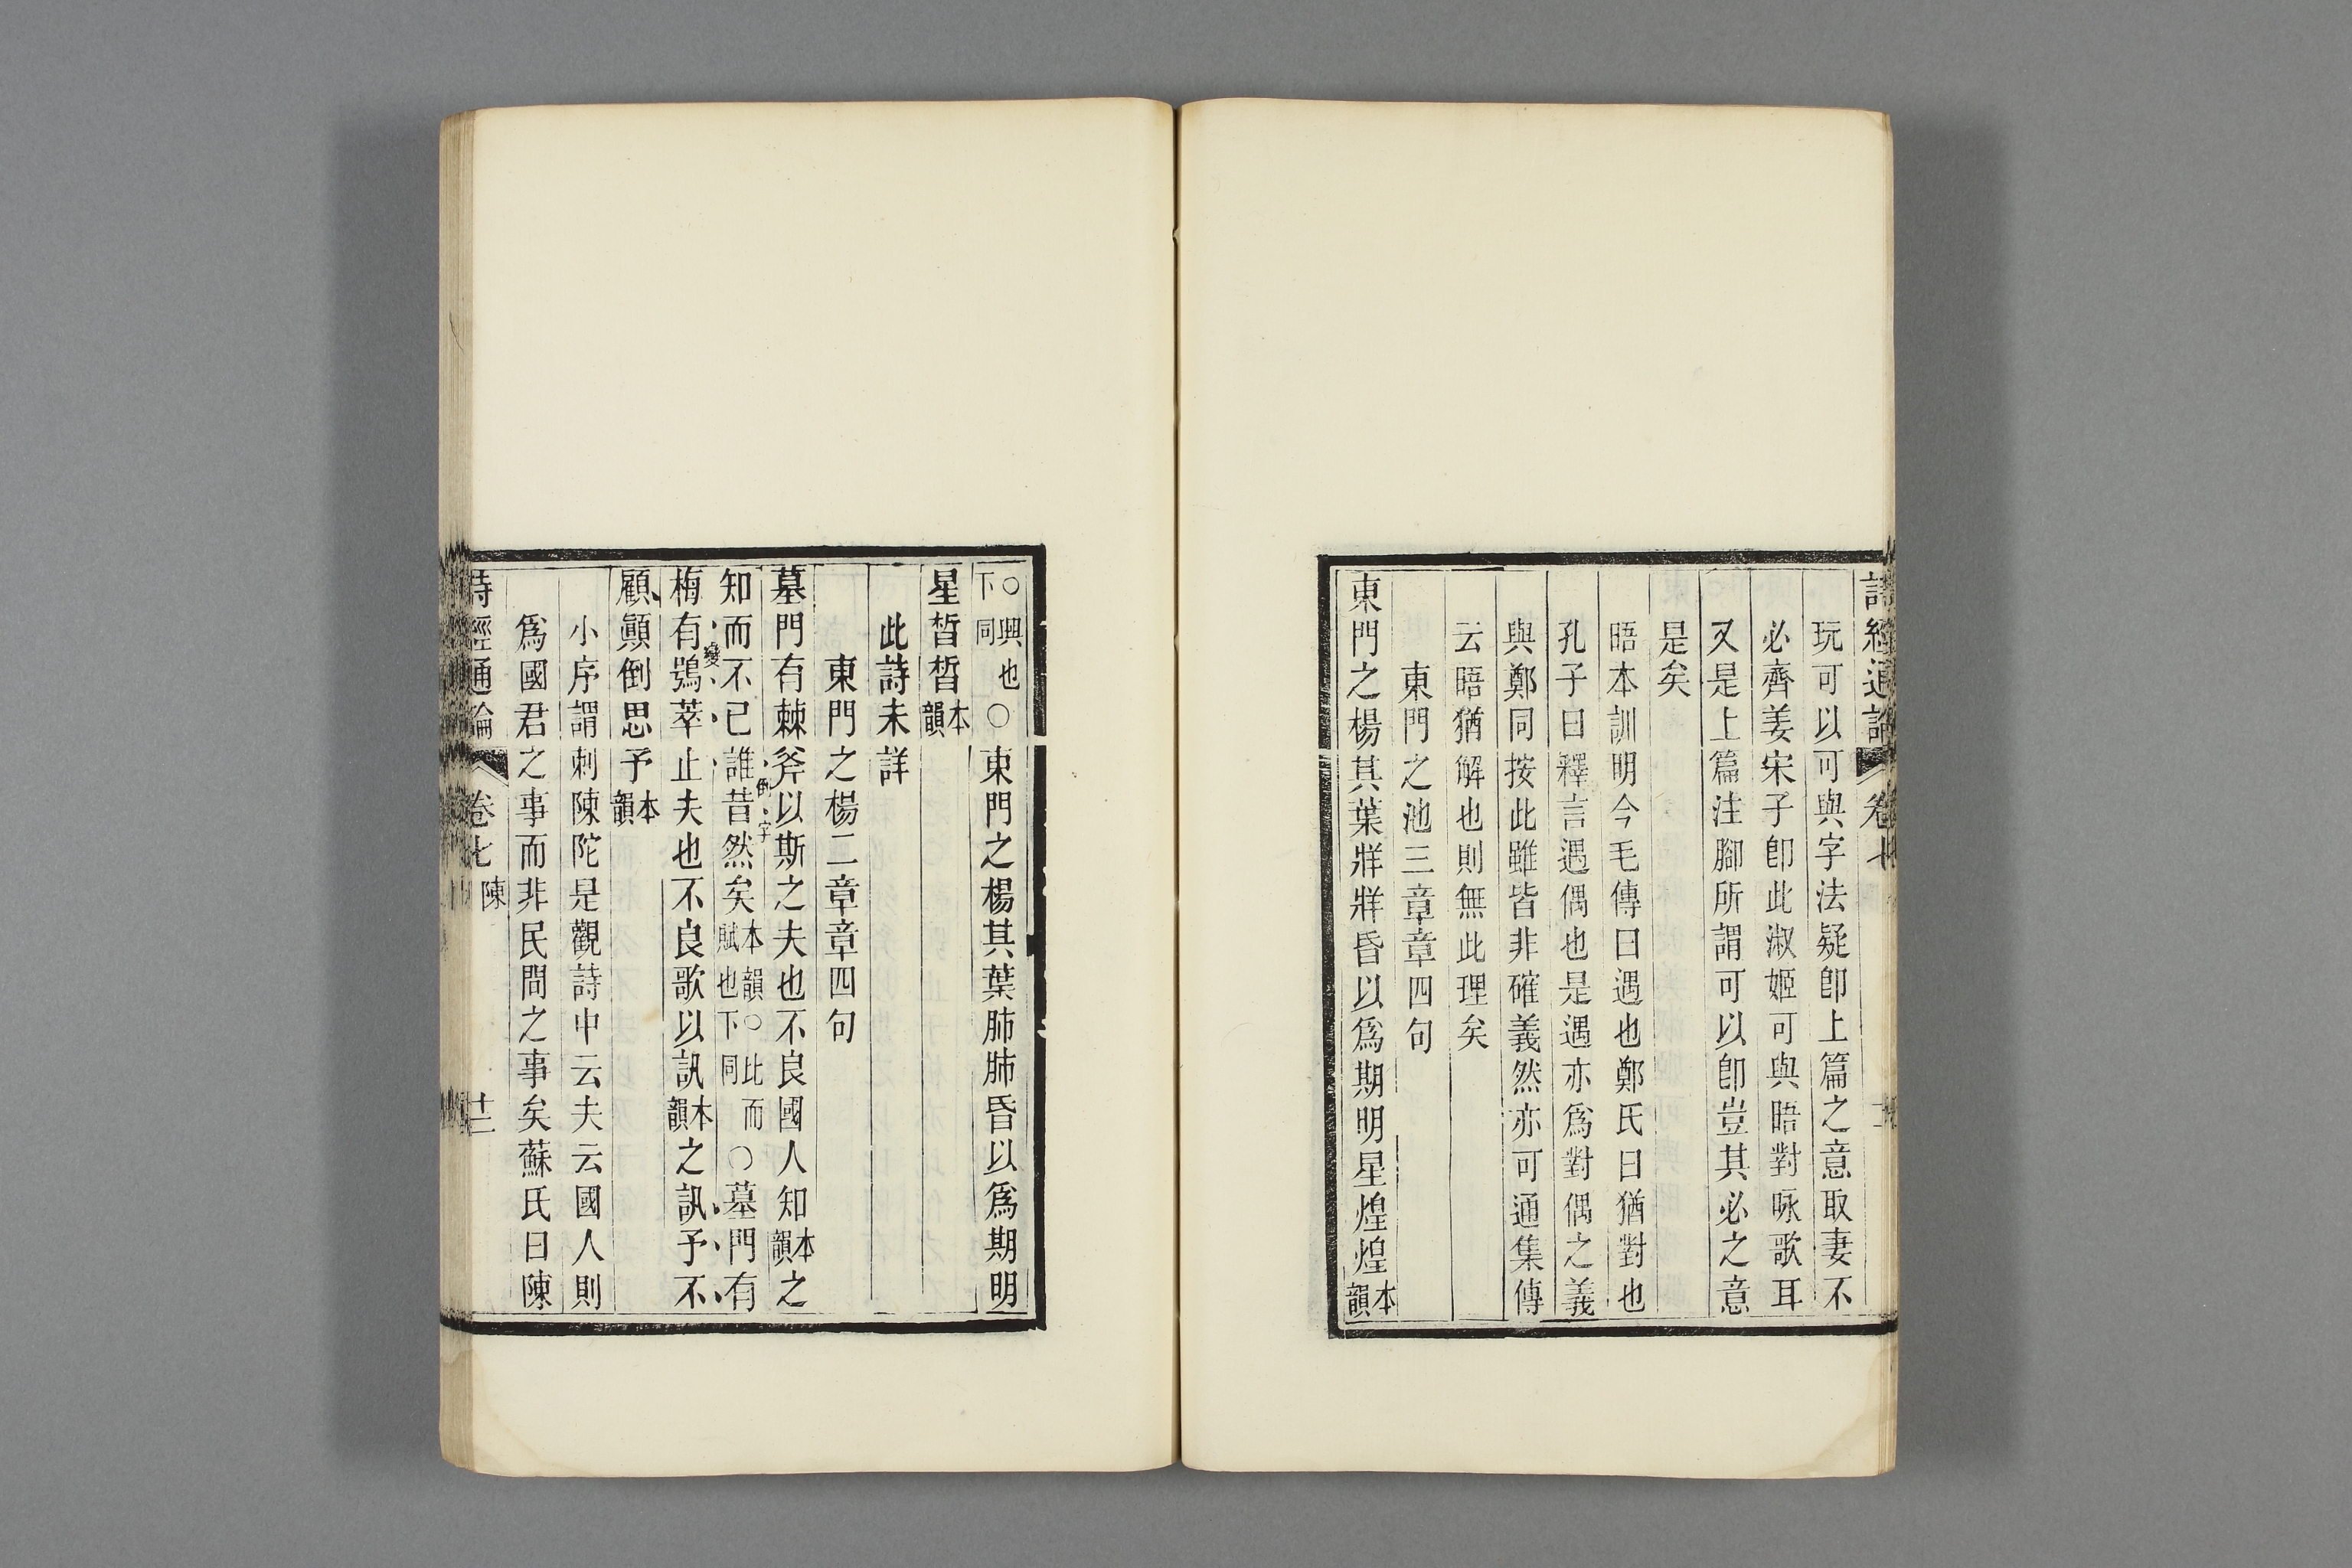 詩經通論 卷七
玩可以可與字法疑卽上篇之意取妻不
必齊姜宋子卽此淑姬可與晤對咏歌耳
又是上篇注腳所謂可以卽豈其必之意
是矣
晤本訓明今毛傳曰遇也鄭氏曰猶對也
孔子曰釋言遇偶也是遇亦爲對偶之義
與鄭同按此雖皆非確義然亦可通集傳
云晤猶解也則無此理矣
東門之池三章章四句
東門之楊其葉牂牂昏以爲期明星煌煌本韻
○興也下同○東門之楊其葉肺肺昏以爲期明
星晢晢本韻
此詩未詳
東門之楊二章章四句
墓門有棘斧以斯之夫也不良國人知本韻之
倒字
知而不已誰昔然矣本韻○比而賦也下同○墓門有
變
梅有鴞萃止夫也不良歌以訊本韻之訊予不
顧顚倒思予本韻
小序謂刺陳陀是觀詩中云夫云國人則
爲國君之事而非民間之事矣蘇氏曰陳
詩經通論 卷七 陳 十二